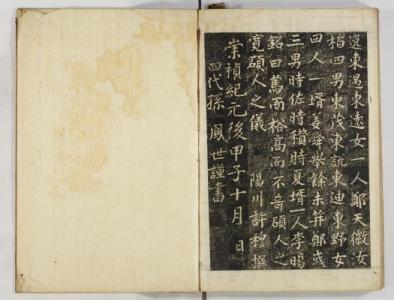 遠東遇東遠女一人鄭天徽次
栢四男東茂東說東迪東野女
四人一壻姜舜弼餘未幷鄭彧
三男時佐時積時夏壻一人李暘
銘曰篤而恪高而不苛碩人之
寬碩人之儀 陽川許穆撰
崇禎紀元後甲子十月 日
四代孫 鳳世謹書